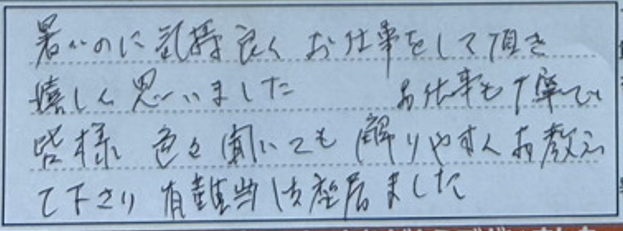 暑いのに気持良く お仕事をして頂き
嬉しく思いました お仕事も丁寧で
皆様 色々聞いても 解りやすくお教え
て下さり 有難う御座居ました